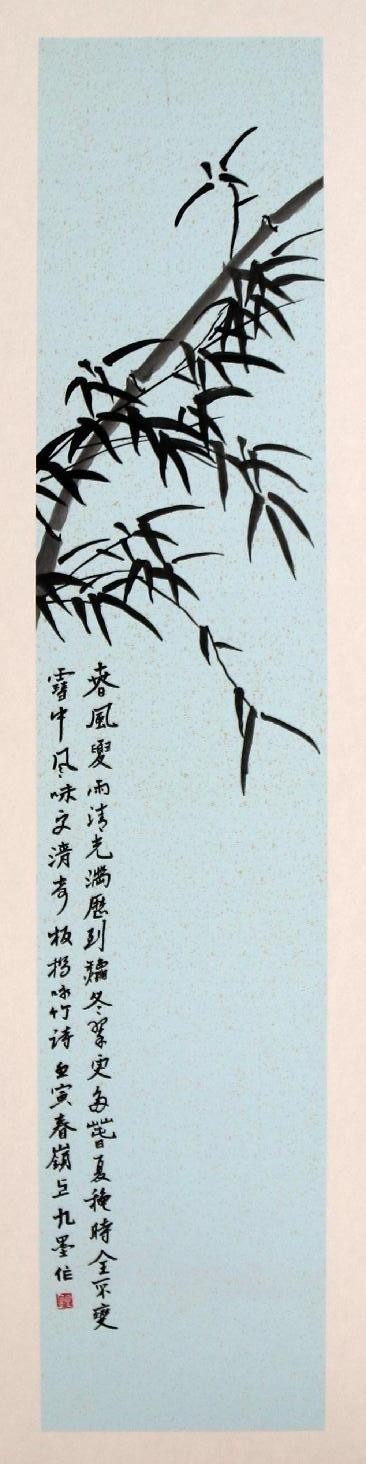 春風夏雨清光滿歷到穠冬翠更多昔夏秾時全不變
雪中風味文清奇 板橋咏竹詩 壬寅春嶺上九墨作